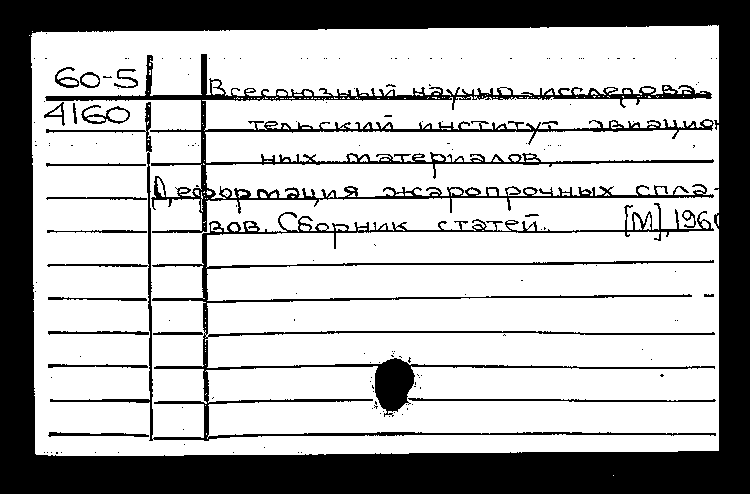 60-5
4160
Всесоюзный научно-исследова-
тельский институт авиацион
ных материалов.
Деформация жаропрочных спла-
вов. Сборник статей. [М], 1960